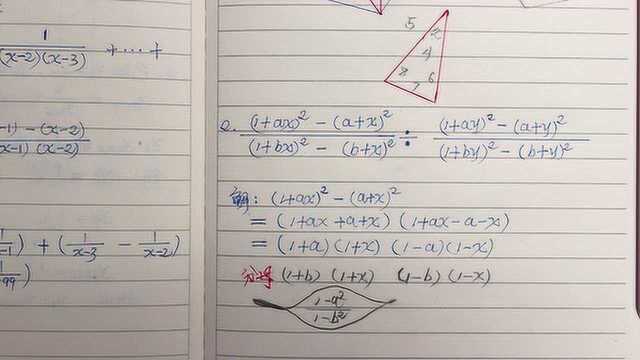 1/((x-2)(x-3)) + ... +
-1) - (x-2) / x-1) (x-2)
-1) + (1/(x-3) - 1/(x-2))
99)
5
4
6
7
2. ((1+ax)² - (a+x)²)/((1+bx)² - (b+x)²) ÷ ((1+ay)² - (a+y)²)/((1+by)² - (b+y)²)
解: (1+ax)² - (a+x)²
= (1+ax+a+x) (1+ax-a-x)
= (1+a) (1+x) (1-a) (1-x)
分母 (1+b) (1+x) (1-b) (1-x)
(1-a²)/(1-b²)